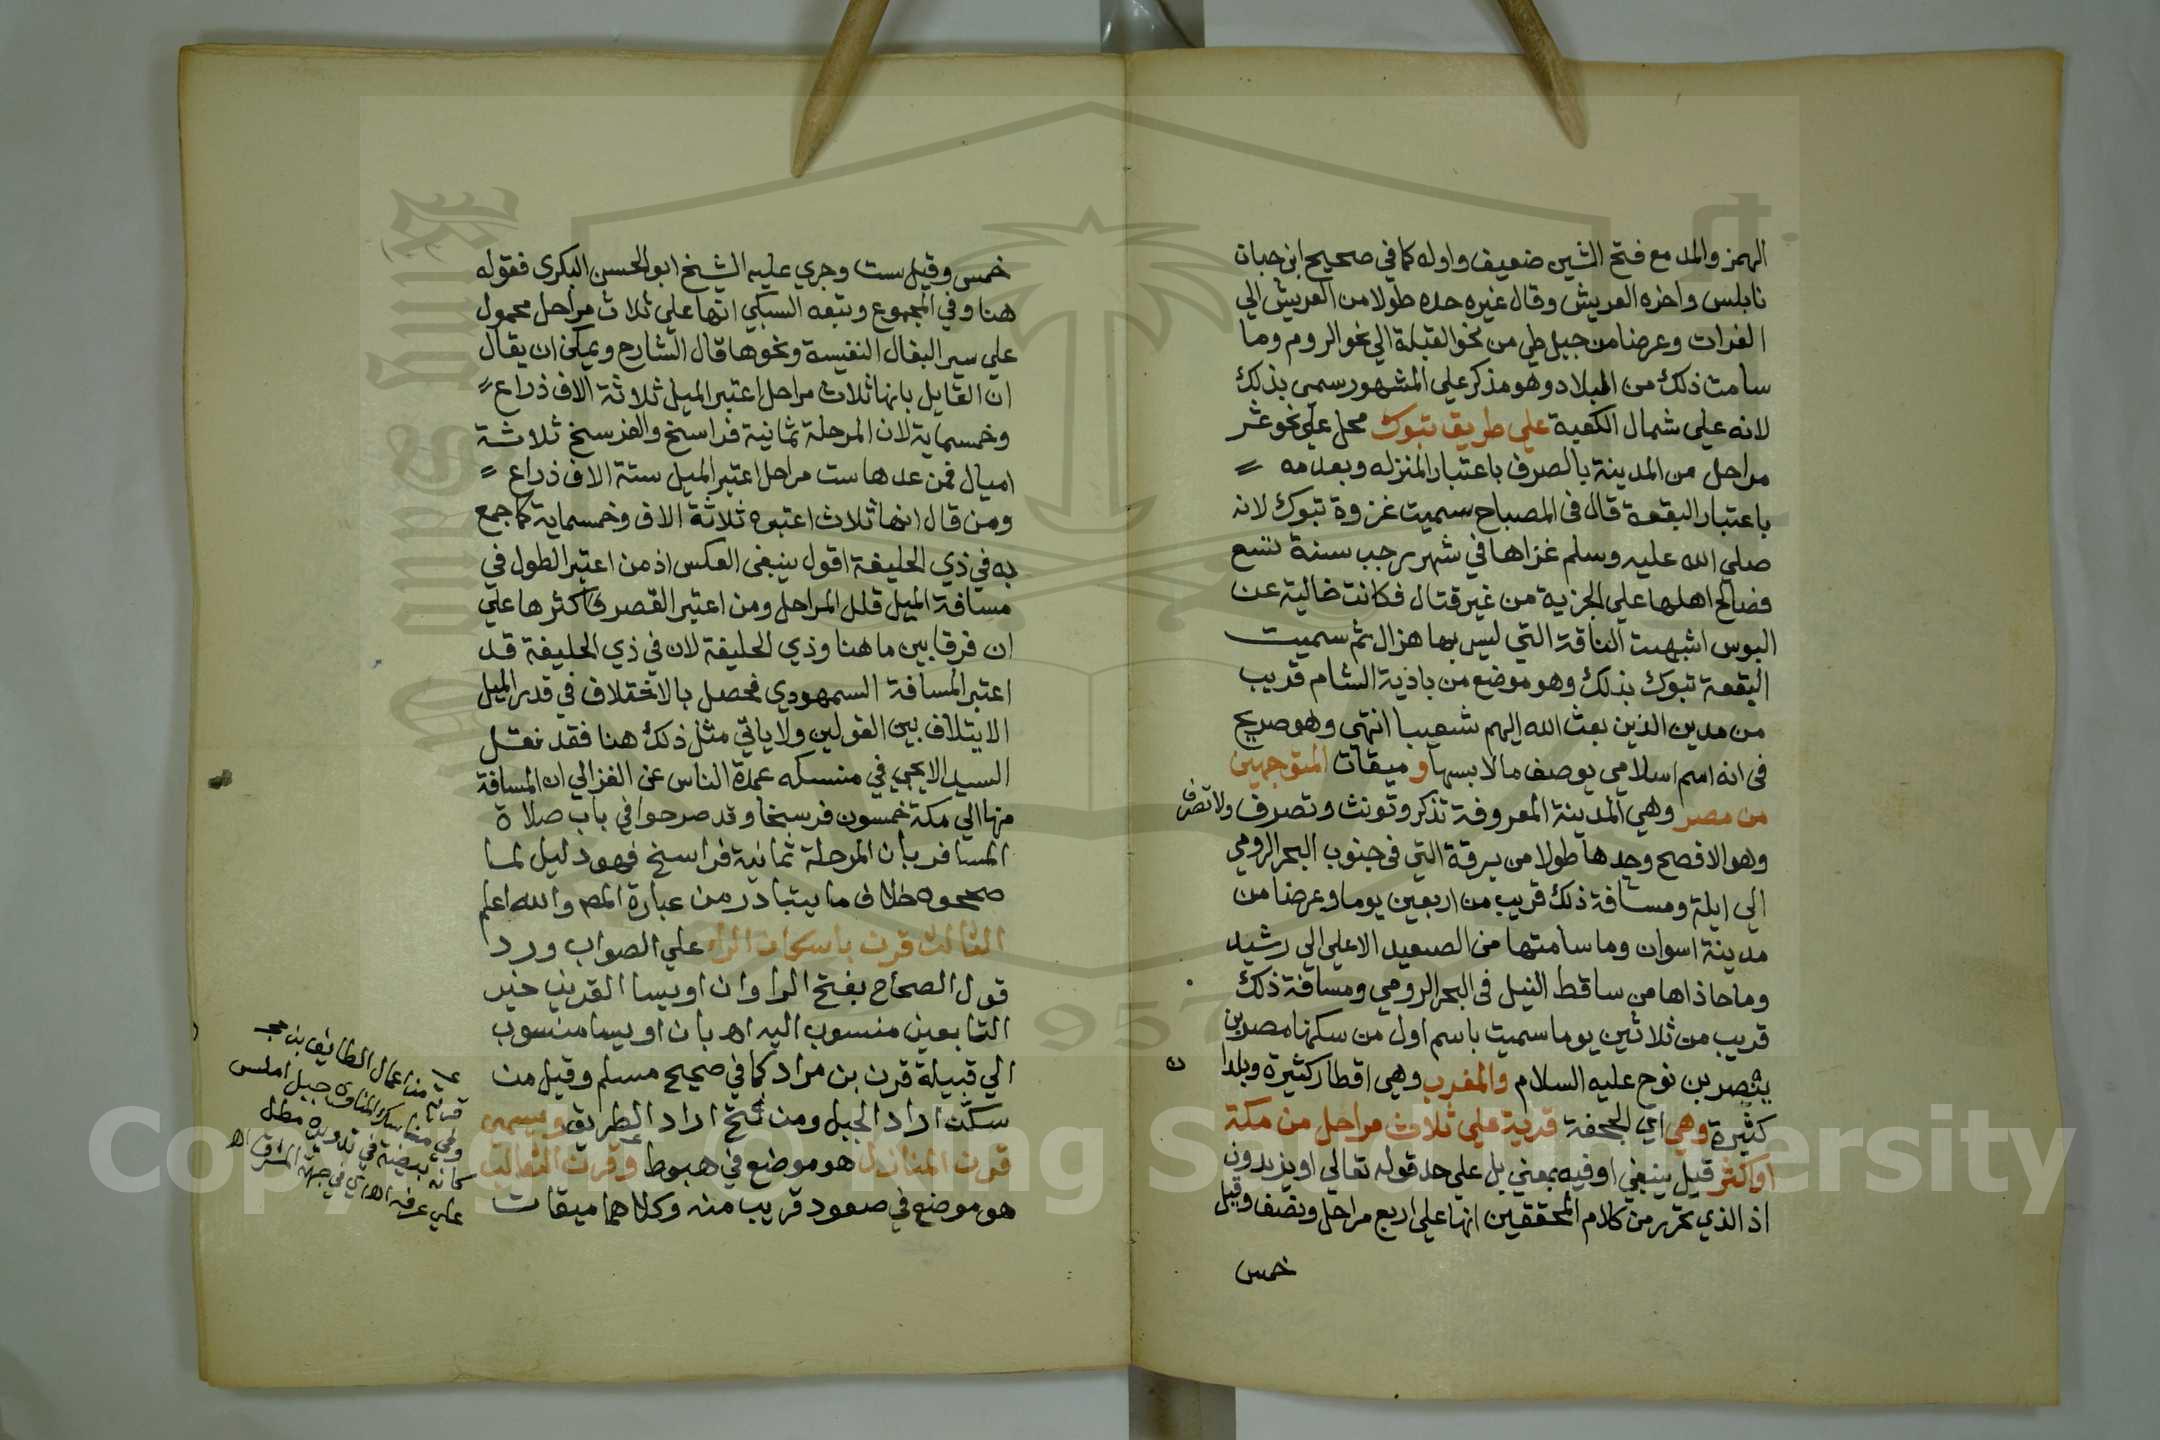 الهمز والمد مع فتح الشين ضعيف واوله كما في صحيح ابن حبان
نابلس واخره العريش وقال غيره حده طولا من العريش الي
الفرات وعرضا من جبل طي من نحو القبلة الي نحو الروم وما
سامت ذلك من البلاد وهو مذكر علي المشهور سمي بذلك
لانه علي شمال الكعبة علي طريق تبوك محل علي نحو عشر
مراحل من المدينة بالصرف باعتبار المنزله وبعدمه
باعتبار البقعة قال في المصباح سميت غزوة تبوك لانه
صلي الله عليه وسلم غزاها في شهر رجب سنة تسع
فصالح اهلها علي الجزية من غير قتال فكانت خالية عن
البوس اشبهت الناقة التي ليس بها هزال ثم سميت
البقعة تبوك بذلك وهو موضع من بادية الشام قريب
من مدين الذين بعث الله اليهم شعيبا انتهي وهو صريح
في انه اسم اسلامي يوصف مالابسها وميقات المتوجهين
من مصر وهي المدينة المعروفة تذكر وتونث وتصرف ولا تصرف
وهو الافصح وحدها طولا من برقة التي في جنوب البحر الرومي
الي ايلة ومسافة ذلك قريب من اربعين يوما وعرضا من
مدينة اسوان وما سامتها من الصعيد الاعلي الي رشيد
وما حاذاها من ساقط النيل في البحر الرومي ومسافة ذلك
قريب من ثلاثين يوما سميت باسم اول من سكنها مصر بن
بنصر بن نوح عليه السلام والمغرب وهي اقطار كثيرة وبلدان
كثيرة وهي اي الجحفة قرية علي ثلاث مراحل من مكة
او اكثر قيل ينبغي او فيه بمعني بل علي حد قوله تعالي او يزيدون
اذ الذي تحرر من كلام المحققين انها علي اربع مراحل ونصف وقيل
خمس
خمس وقيل ست وجري عليه الشيخ ابو الحسن البكري فقوله
هنا وفي المجموع وتبعه السبكي انها علي ثلاث مراحل محمول
علي سير البغال النفيسة ونحوها قال الشارح ويمكن ان يقال
ان القايل بانها ثلاث مراحل اعتبر الميل ثلاثة الاف ذراع
وخمسماية لان المرحلة ثمانية فراسخ والفرسخ ثلاثة
اميال فمن عدها ست مراحل اعتبر الميل ستة الاف ذراع
ومن قال انها ثلاث اعتبره ثلاثة الاف وخمسماية كما جمع
به في ذي الحليفة اقول ينبغي العكس اذ من اعتبر الطول في
مسافة الميل قلل المراحل ومن اعتبر القصر فاكثرها علي
ان فرقا بين ما هنا وذي الحليفة لان في ذي الحليفة قد
اعتبر المسافة السمهودي فحصل بالاختلاف في قدر الميل
الايتلاف بين القولين ولا ياتي مثل ذلك هنا فقد نقل
السيد الايجي في منسكه عمدة الناس عن الغزالي ان المسافة
منها الي مكة خمسون فرسخا وقد صرحوا في باب صلاة
المسافر بان المرحلة ثمانية فراسخ فهو دليل لما
صححوه خلاف ما يتبادر من عبارة المص والله اعلم
الثالث قرن باسكان الراء علي الصواب ورد
قول الصحاح بفتح الرا وان اويسا القرني خير
التابعين منسوب اليه اه بان اويسا منسوب
الي قبيلة قرن بن مراد كما في صحيح مسلم وقيل من
سكن اراد الجبل ومن فتح اراد الطريق ويسمي
قرن المنازل هو موضع في هبوط وقرن الثعالب
هو موضع في صعود قريب منه وكلاهما ميقات
قرية من اعمال الطايف
وفي مناسك المناوي جبل املس
كانه بيضة في تدويره مطل
علي عرفه
Copyright © King Saud University
King Saud University
1957